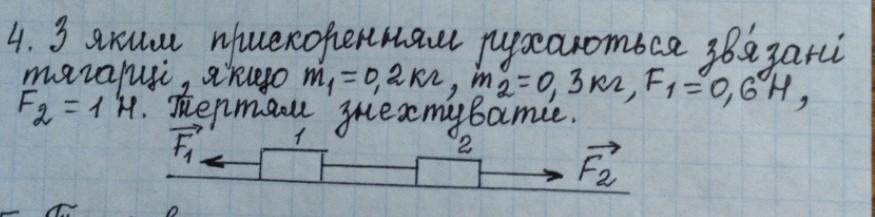 4. З яким прискоренням рухаються зв'язані
тягарці, якщо m₁=0,2кг, m₂=0,3кг, F₁=0,6Н,
F₂=1Н. Тертям знехтувати.
F₁ 1 2 F₂